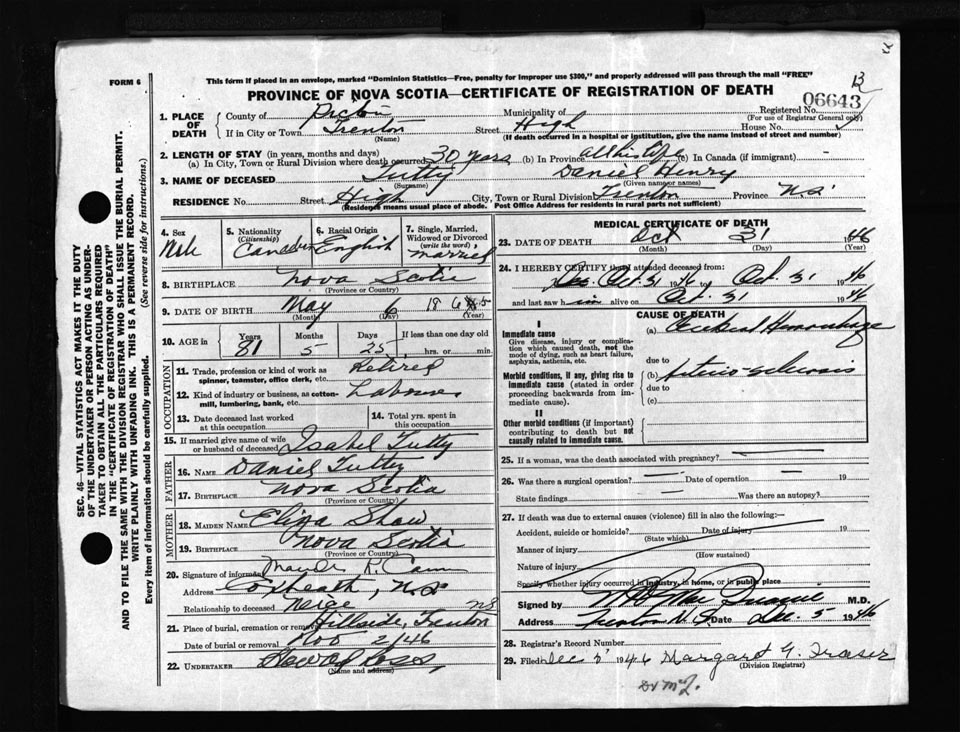 This form if placed in an envelope, marked "Dominion Statistics—Free, penalty for improper use $300," and properly addressed will pass through the mail "FREE"
FORM 6
PROVINCE OF NOVA SCOTIA—CERTIFICATE OF REGISTRATION OF DEATH
06643
1. PLACE OF DEATH
County of Pictou Municipality of Registered No.
(For use of Registrar General only)
If in City or Town Trenton Street High House No.
(Name) (If death occurred in a hospital or institution, give the name instead of street and number)
2. LENGTH OF STAY (in years, months and days)
(a) In City, Town or Rural Division where death occurred 30 years (b) In Province all his life (c) In Canada (if immigrant) –
3. NAME OF DECEASED Tutty Daniel Henry
(Surname) (Given name or names)
RESIDENCE No. Street High City, Town or Rural Division Trenton Province N.S.
(Residence means usual place of abode. Post Office Address for residents in rural parts not sufficient)
4. Sex Male
5. Nationality (Citizenship) Canadian
6. Racial Origin English
7. Single, Married, Widowed or Divorced (write the word) married
8. BIRTHPLACE Nova Scotia
(Province or Country)
9. DATE OF BIRTH May 6 186 5
(Month) (Year)
10. AGE in Years Months Days If less than one day
81 5 25 hrs. or min.
OCCUPATION
11. Trade, profession or kind of work as spinner, teamster, office clerk, etc. Retired
12. Kind of industry or business, as cotton-mill, lumbering, bank, etc. Labourer
13. Date deceased last worked at this occupation
14. Total yrs. spent in this occupation
15. If married give name of wife or husband of deceased Isabel Tutty
FATHER
16. NAME Daniel Tutty
17. BIRTHPLACE Nova Scotia
(Province or Country)
MOTHER
18. MAIDEN NAME Eliza Shaw
19. BIRTHPLACE Nova Scotia
(Province or Country)
20. Signature of informant Maude R. Cann
Address Coxheath, N.S.
Relationship to deceased Neice
NS
21. Place of burial, cremation or removal Hillside, Trenton
Date of burial or removal Nov 2/46
22. UNDERTAKER
(Name and address)
MEDICAL CERTIFICATE OF DEATH
23. DATE OF DEATH Oct 31 1946
(Month) (Day)
24. I HEREBY CERTIFY that I attended deceased from:
Oct. 31 1946 to Oct. 31 1946
and last saw him alive on Oct. 31 1946
CAUSE OF DEATH
I
Immediate cause
Give disease, injury or complication which caused death, not the mode of dying, such as heart failure, asphyxia, asthenia, etc.
(a) Cerebral Hemorrhage
due to
Morbid conditions, if any, giving rise to immediate cause (stated in order proceeding backwards from immediate cause).
(b) Arterio-sclerosis
due to
(c)
II
Other morbid conditions (if important) contributing to death but not causally related to immediate cause.
25. If a woman, was the death associated with pregnancy?
26. Was there a surgical operation? Date of operation 19
State findings Was there an autopsy?
27. If death was due to external causes (violence) fill in also the following:—
Accident, suicide or homicide? Date of injury 19
(State which)
Manner of injury
(How sustained)
Nature of injury
Specify whether injury occurred in industry, in home, or in public place
Signed by M.D.
Address Trenton N.S. Date Dec. 5 1946
28. Registrar's Record Number
29. Filed Dec 5 1946 Margaret G. Fraser
(Division Registrar)
Dr McQ.
SEC. 46—VITAL STATISTICS ACT MAKES IT THE DUTY
OF THE UNDERTAKER OR PERSON ACTING AS UNDER-
TAKER TO OBTAIN ALL THE PARTICULARS REQUIRED
IN THE "CERTIFICATE OF REGISTRATION OF DEATH"
AND TO FILE THE SAME WITH THE DIVISION REGISTRAR WHO SHALL ISSUE THE BURIAL PERMIT.
WRITE PLAINLY WITH UNFADING INK. THIS IS A PERMANENT RECORD.
Every item of information should be carefully supplied. (See reverse side for instructions.)